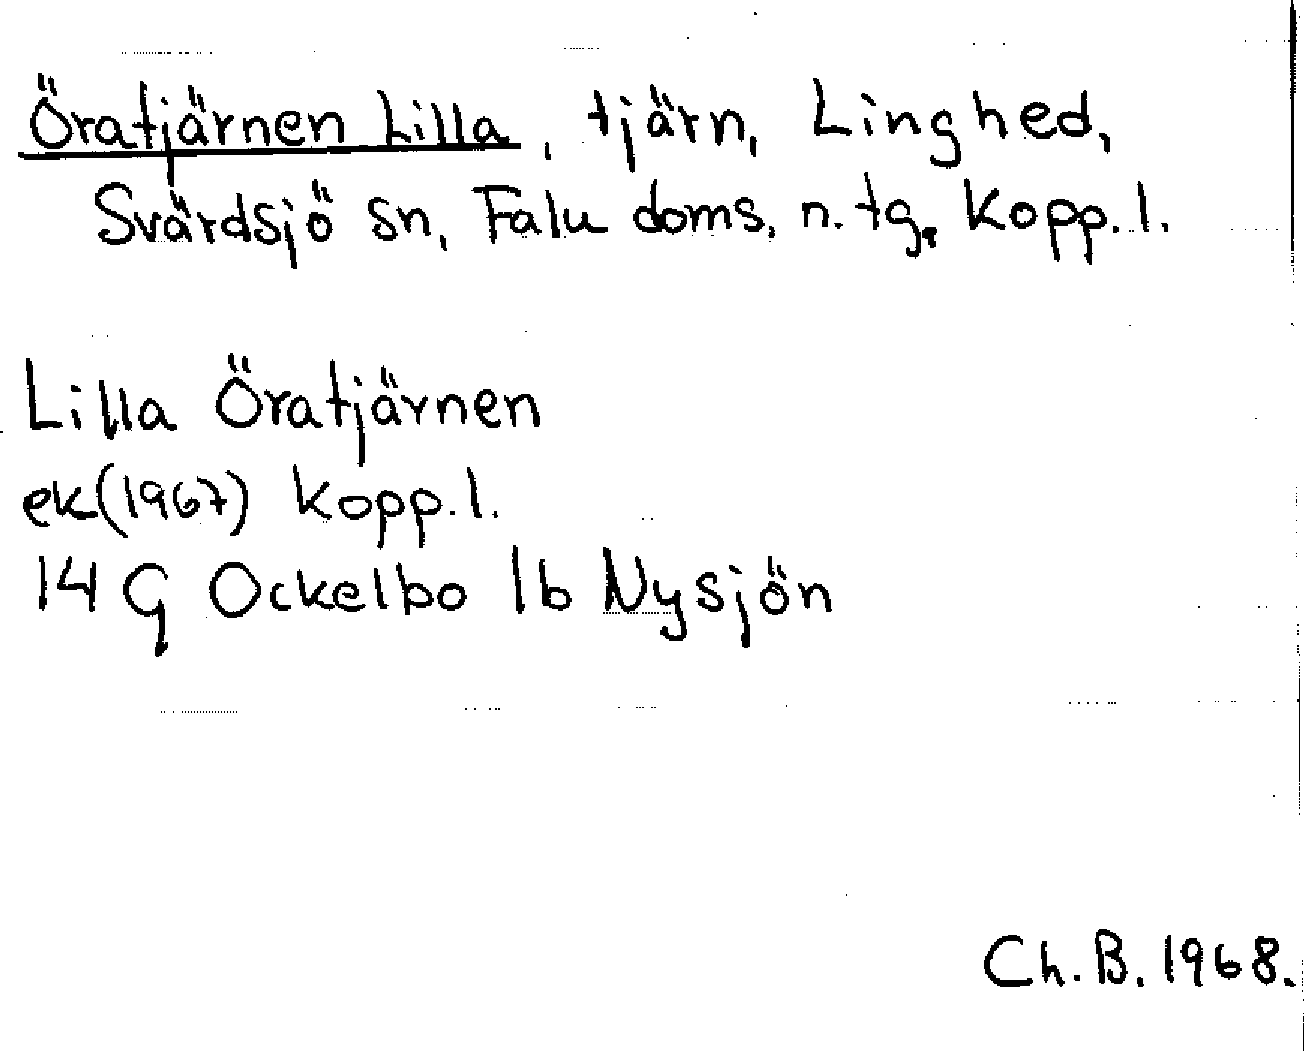 Öratjärnen Lilla, tjärn, Linghed,
Svärdsjö sn, Falu doms, n. tg. Kopp. l.
Lilla Öratjärnen
ek (1967) Kopp. l.
14 G Ockelbo 1b Nysjön
Ch. B. 1968.